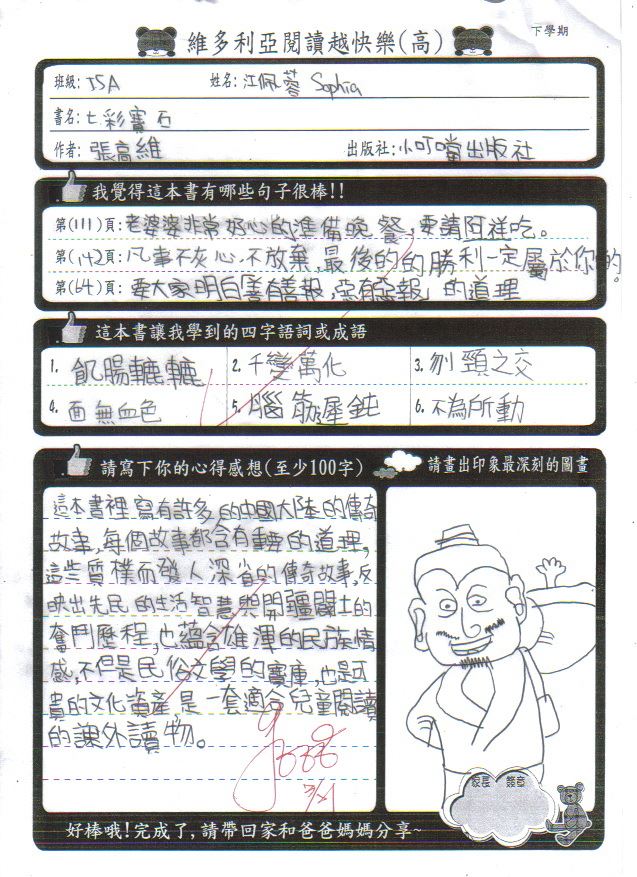 下學期
維多利亞閱讀越快樂(高)
班級: J5A 姓名: 江佩蓉 Sophia
書名: 七彩寶石
作者: 張高維 出版社: 小叮噹出版社
我覺得這本書有哪些句子很棒!!
第(111)頁: 老婆婆非常好心的準備晚餐,要請阿祥吃。
第(142)頁: 凡事不灰心,不放棄,最後的的勝利一定屬於你的。
第(64)頁: 要大家明白「善有善報,惡有惡報」的道理
這本書讓我學到的四字語詞或成語
1. 飢腸轆轆 2. 千變萬化 3. 刎頸之交
4. 面無血色 5. 腦筋遲鈍 6. 不為所動
請寫下你的心得感想(至少100字) 請畫出印象最深刻的圖畫
這本書裡寫有許多的中國大陸的傳奇
故事,每個故事都含有重要的道理,
這些質樸而發人深省的傳奇故事,反
映出先民的生活智慧與開疆闢土的
奮鬥歷程,也蘊含雄渾的民族情
感,不但是民俗文學的寶庫,也是可
貴的文化資產是一套適合兒童閱讀
的課外讀物。
3/21
家長 簽章
好棒哦!完成了,請帶回家和爸爸媽媽分享~